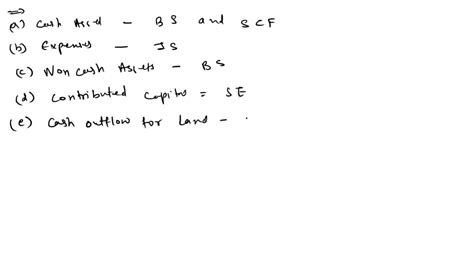 ⇒
(a) Cash Asset – BS and SCF
(b) Expenses – IS
(c) Non cash Assets – BS
(d) Contributed Capital = SE
(e) Cash outflow for Land –